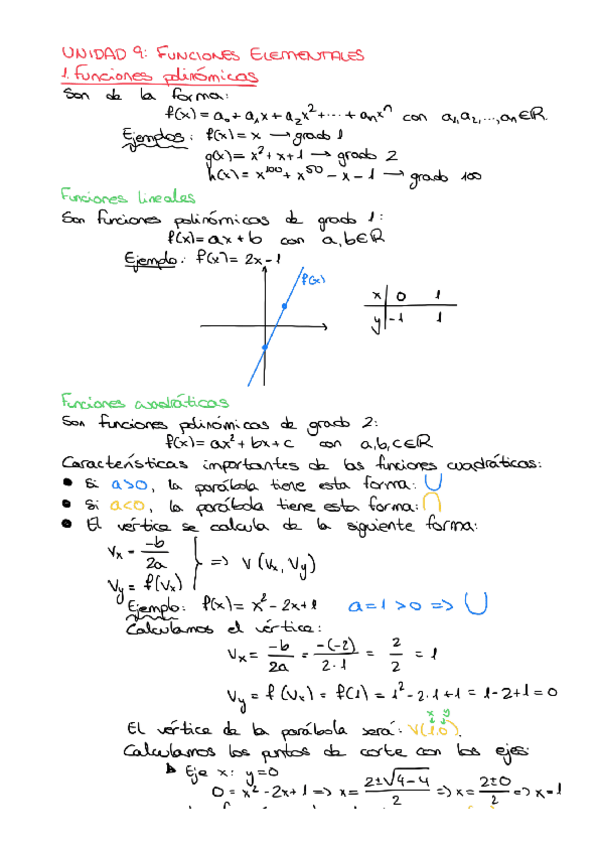 UNIDAD 9: FUNCIONES ELEMENTALES
1. Funciones polinómicas
Son de la forma:
f(x) = a₀ + a₁x + a₂x² + ... + aₙxⁿ con a₁, a₂, ..., aₙ ∈ ℝ.
Ejemplos: f(x) = x → grado 1
g(x) = x² + x + 1 → grado 2
h(x) = x¹⁰⁰ + x⁵⁰ - x - 1 → grado 100
Funciones lineales
Son funciones polinómicas de grado 1:
f(x) = ax + b con a, b ∈ ℝ
Ejemplo: f(x) = 2x - 1
f(x)
x | 0 1
y | -1 1
Funciones cuadráticas
Son funciones polinómicas de grado 2:
f(x) = ax² + bx + c con a, b, c ∈ ℝ
Características importantes de las funciones cuadráticas:
• Si a>0, la parábola tiene esta forma: ∪
• Si a<0, la parábola tiene esta forma: ∩
• El vértice se calcula de la siguiente forma:
Vx = -b/2a
Vy = f(Vx) } => V(Vx, Vy)
Ejemplo: f(x) = x² - 2x + 1 a = 1 > 0 => ∪
Calculamos el vértice:
Vx = -b/2a = -(-2)/2·1 = 2/2 = 1
Vy = f(Vx) = f(1) = 1² - 2·1 + 1 = 1 - 2 + 1 = 0
x y
El vértice de la parábola será: V(1,0).
Calculamos los puntos de corte con los ejes:
Eje x: y=0
0 = x² - 2x + 1 => x = 2±√4-4/2 => x = 2±0/2 => x = 1